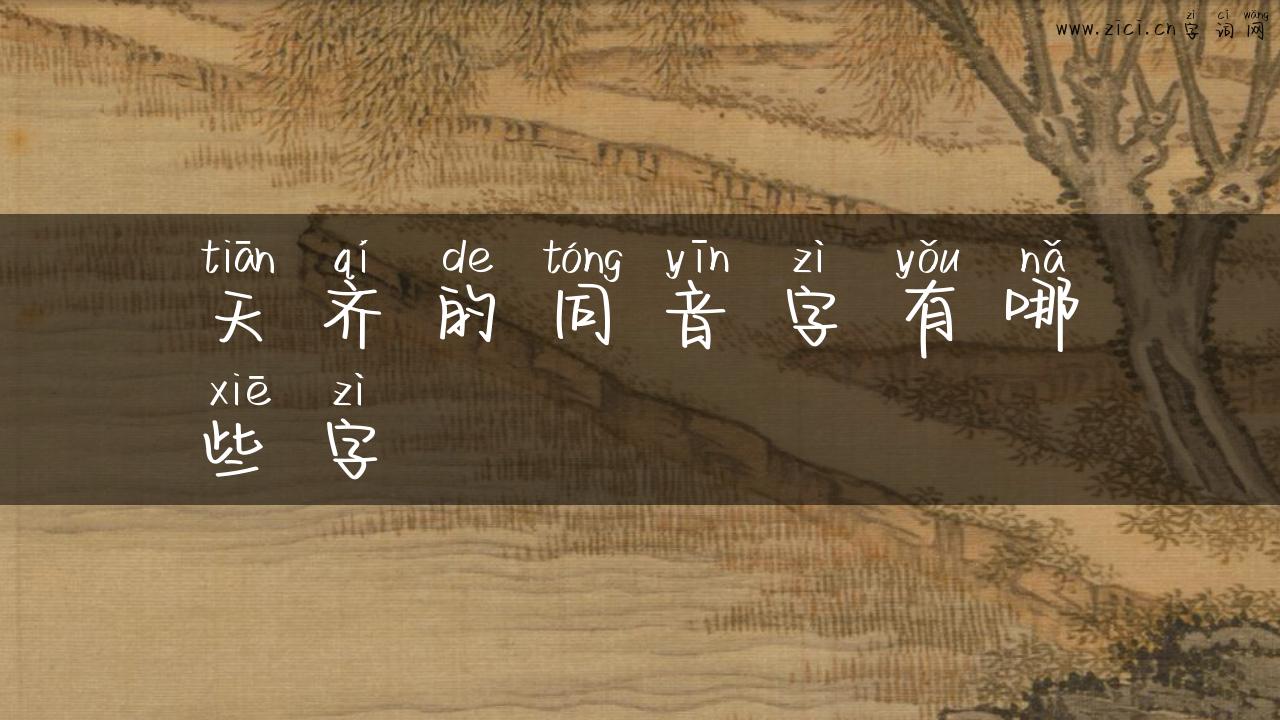 zì cí wǎng
www.zici.cn字词网
tiān qí de tóng yīn zì yǒu nǎ
天齐的同音字有哪
xiē zì
些字